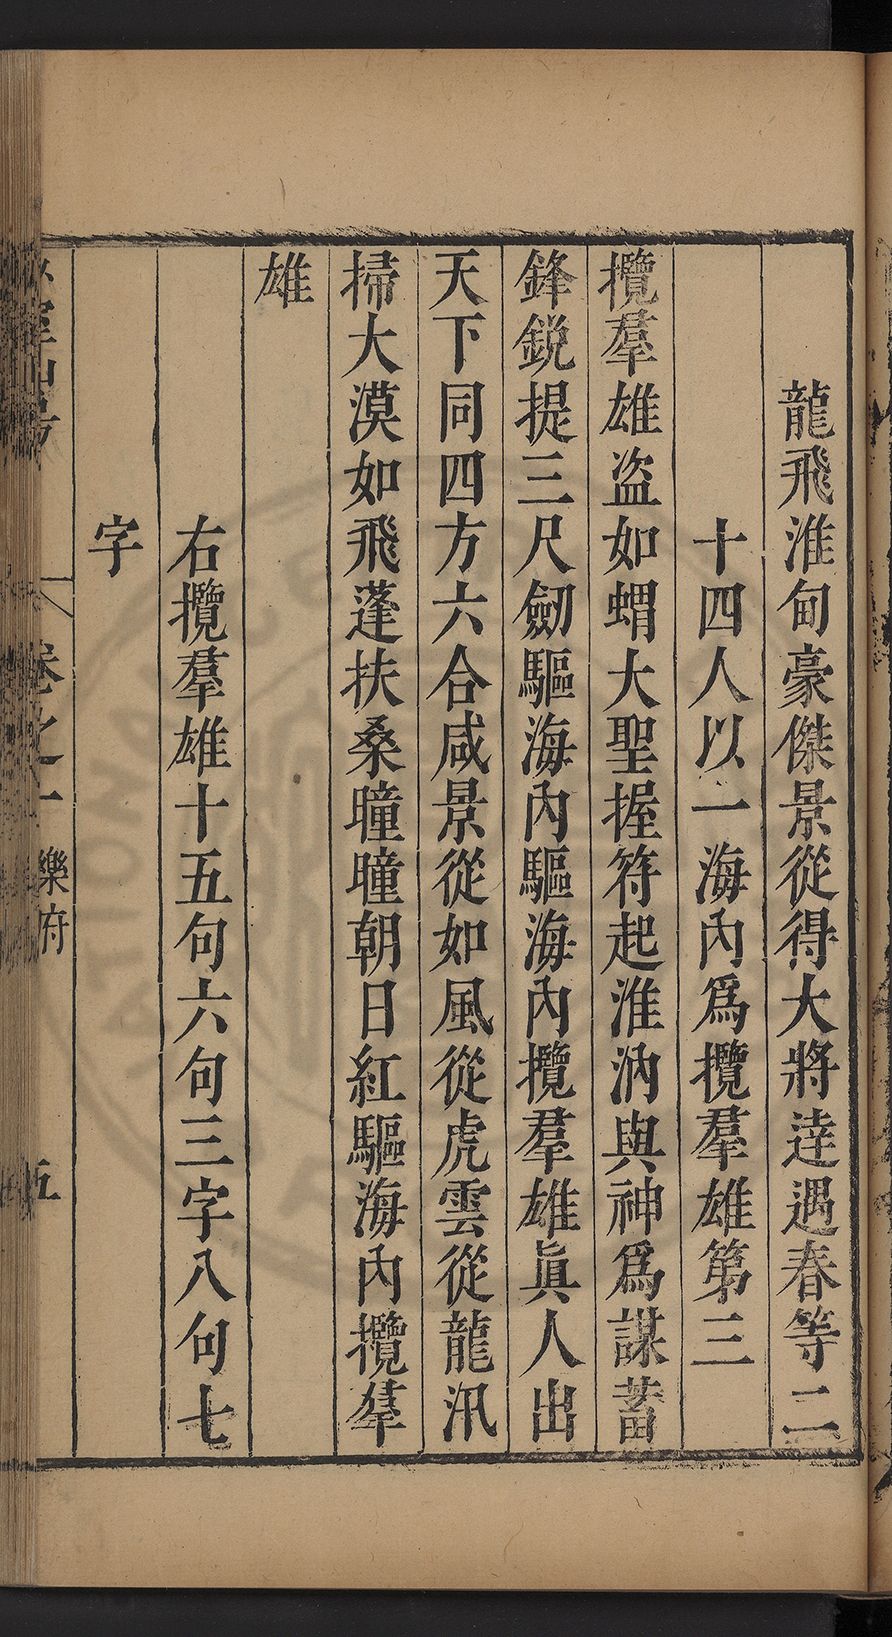 龍飛淮甸豪傑景從得大將逹遇春等二
十四人以一海內爲攬羣雄第三
攬羣雄盜如蝟大聖握符起淮汭與神爲謀蓄
鋒銳提三尺劒驅海內驅海內攬羣雄眞人出
天下同四方六合咸景從如風從虎雲從龍汛
掃大漠如飛蓬扶桑曈曈朝日紅驅海內攬羣
雄
右攬羣雄十五句六句三字八句七
字
卷之一 樂府 五